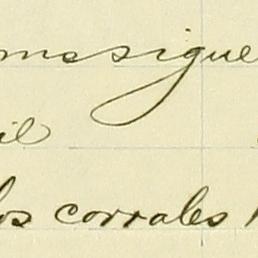 mesigue
il
los corrales